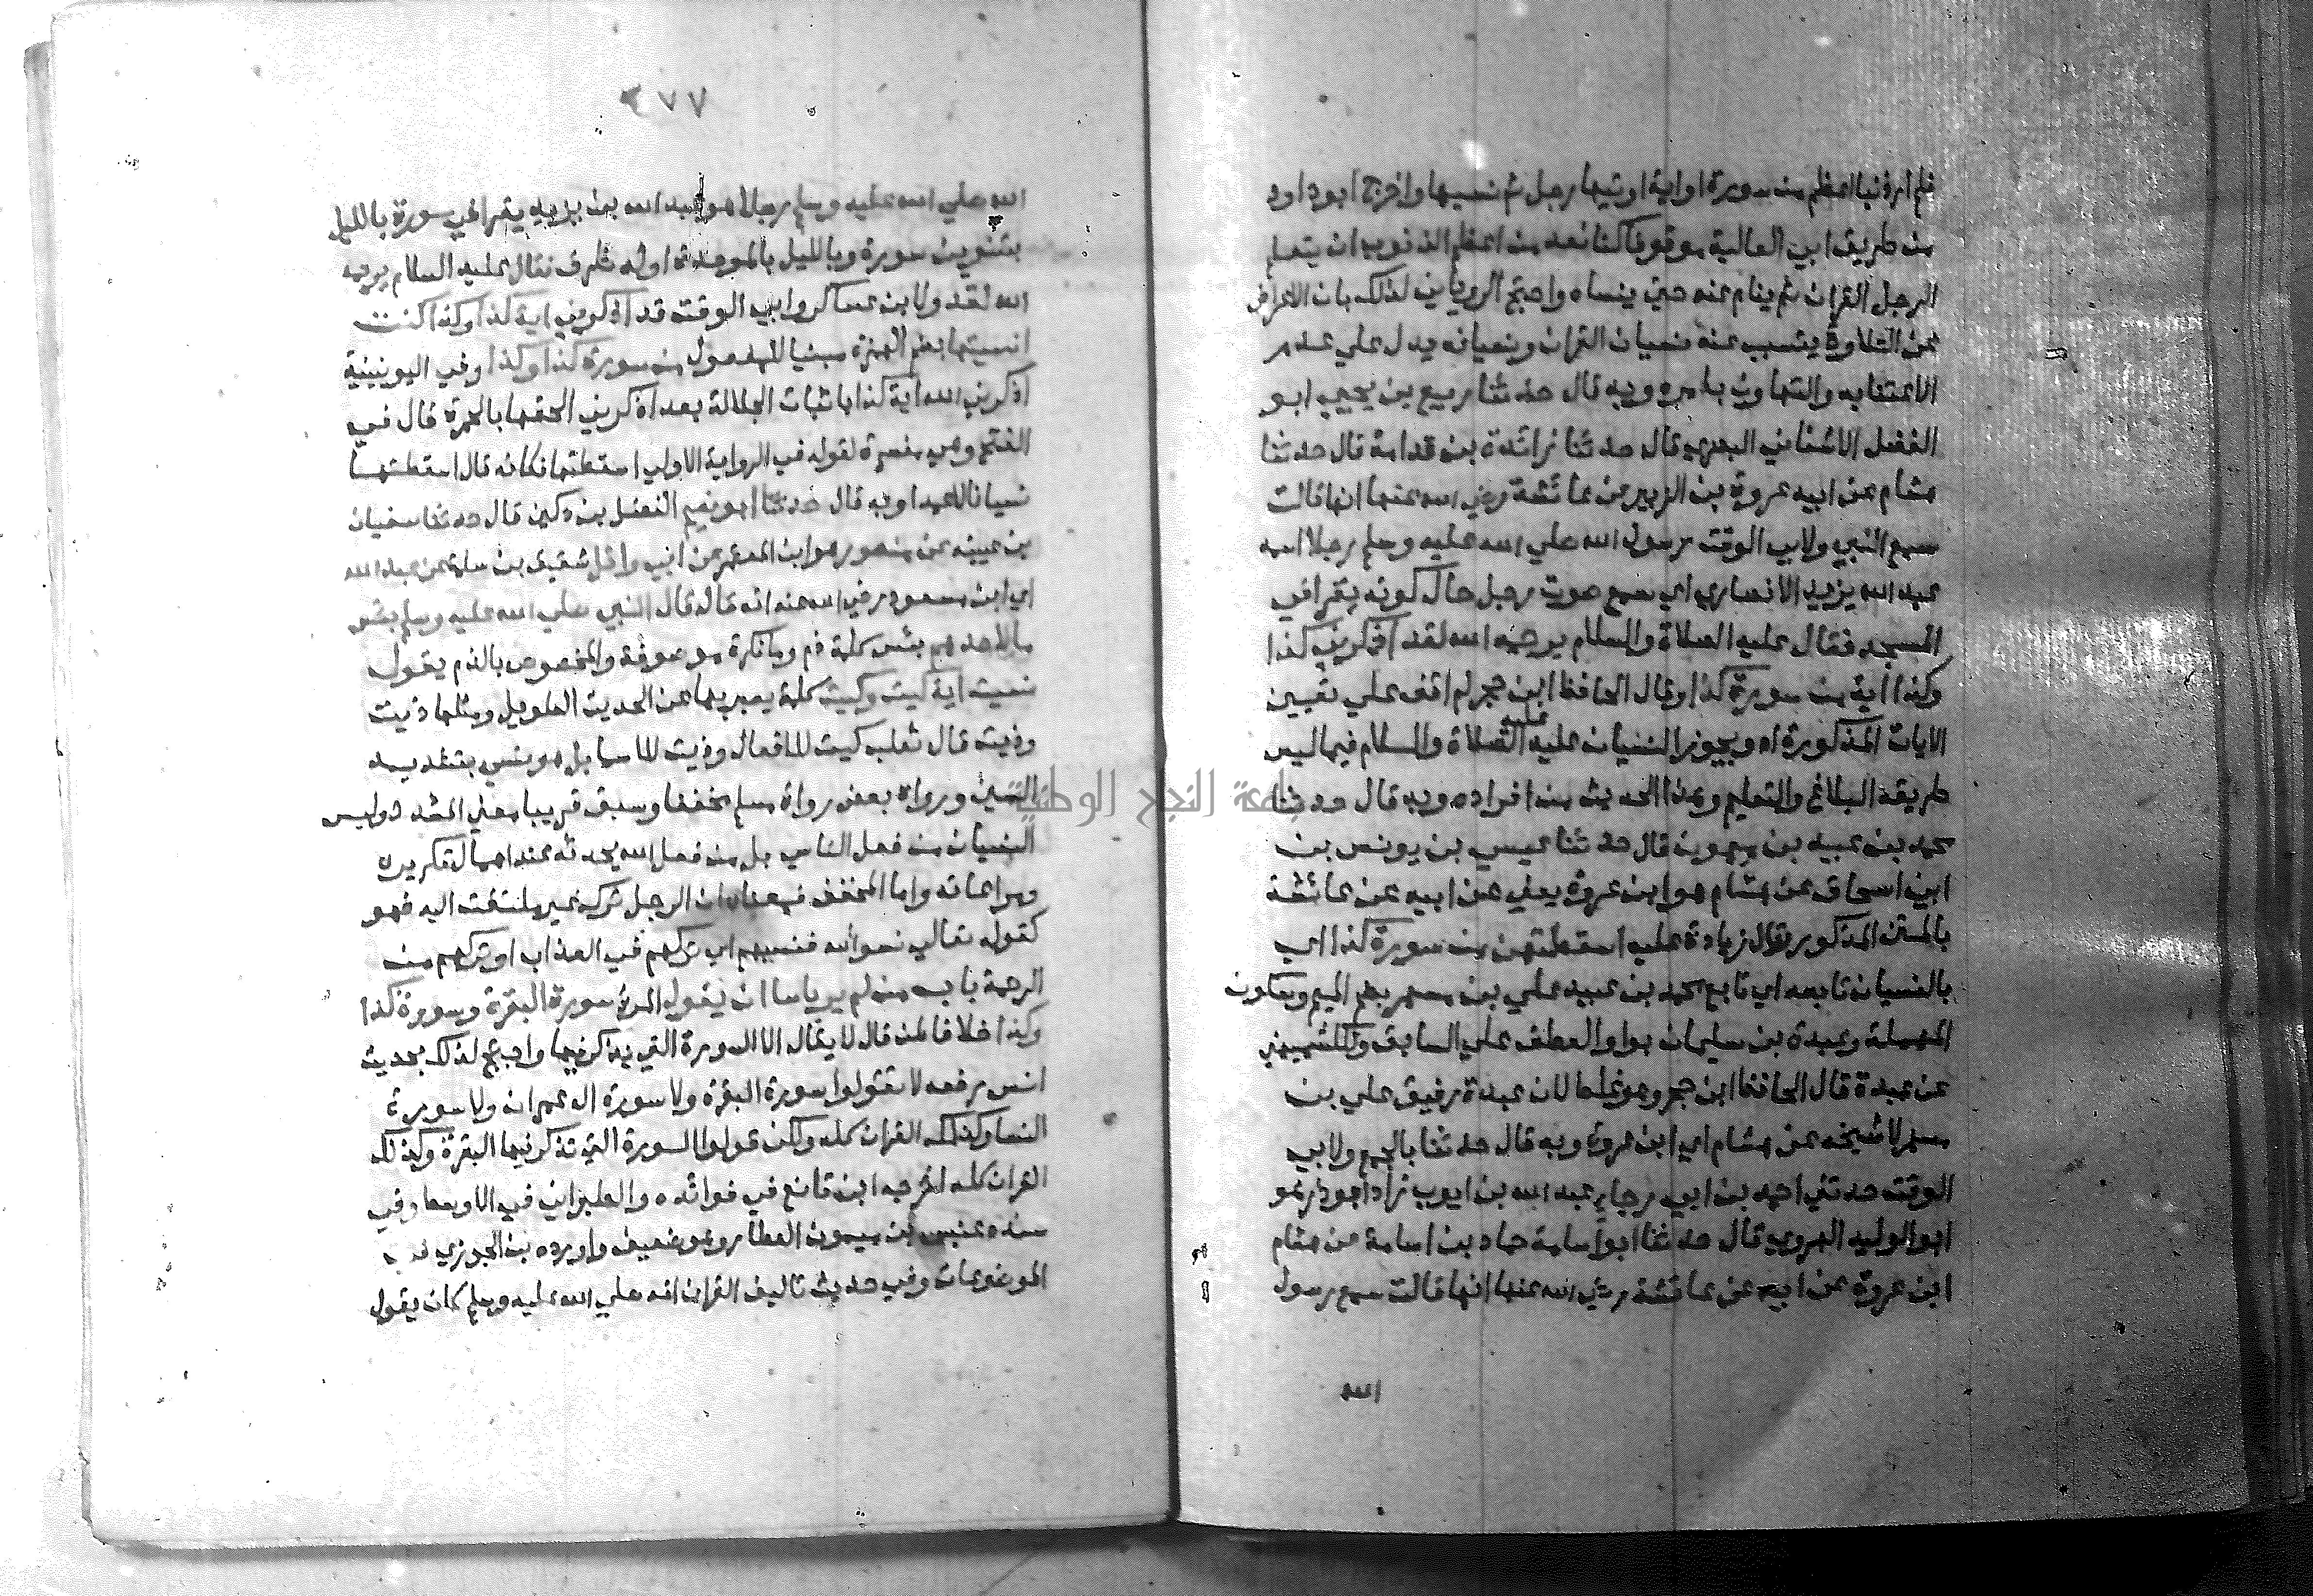 فلم ار ذنبا اعظم من سورة او اية اوتيها رجل ثم نسيها واخرج ابو داود
من طريق ابي العالية موقوفا كنا نعد من اعظم الذنوب ان يتعلم
الرجل القران ثم ينام عنه حتي ينساه واحتج الروياني لذلك بان الاعراض
عن التلاوة يتسبب عنه نسيان القران ونسيانه يدل علي عدم
الاعتنا به والتهاون بامره وبه قال حدثنا ربيع بن يحيي ابو
الفضل الاشناني البصري قال حدثنا زائدة بن قدامة قال حدثنا
هشام عن ابيه عروة بن الزبير عن عائشة رضي الله عنها انها قالت
سمع النبي ولابي الوقت رسول الله صلي الله عليه وسلم رجلا اسمه
عبد الله يزيد الانصاري اي سمع صوت رجل حال كونه يقرا في
المسجد فقال عليه الصلاة والسلام يرحمه الله لقد اذكرني كذا
وكذا اية من سورة كذا وقال الحافظ ابن حجر لم اقف علي تعيين
الايات المذكورة اه ويجوز النسيان عليه عليه الصلاة والسلام فيما ليس
طريقه البلاغ والتعليم وهذا الحديث من افراده وبه قال حدثنا
محمد بن عبيد بن ميمون قال حدثنا عيسي بن يونس بن
ابي اسحاق عن هشام هو ابن عروة يعني عن ابيه عن عائشة
بالمتن المذكور وقال زيادة عليه اسقطتهن من سورة كذا اي
بالنسيان تابعه اي تابع محمد بن عبيد علي بن مسهر بضم الميم وسكون
المهملة وعبدة بن سليمان بواو العطف علي السابق وللكشميهني
عن عبدة قال الحافظ ابن حجر وهو غلط لان عبدة رفيق علي بن
مسهر لا شيخه عن هشام اي ابن عروة وبه قال حدثنا بالجمع ولابي
الوقت حدثني احمد بن ابي رجا عبد الله بن ايوب زاد ابو ذر هو
ابو الوليد الهروي قال حدثنا ابو اسامة حماد بن اسامة عن هشام
ابن عروة عن ابيه عن عائشة رضي الله عنها انها قالت سمع رسول
الله
٢٧٧
الله صلي الله عليه وسلم رجلا هو عبد الله بن يزيد يقرا في سورة بالليل
بتنوين سورة وبالليل بالموحدة اوله ظرف فقال عليه السلام يرحمه
الله لقد ولابن عساكر وابي الوقت قد اذكرني اية كذا وكذا كنت
انسيتها بضم الهمزة مبنيا للمفعول من سورة كذا وكذا وفي اليونينية
اذكرني الله اية كذا باثبات الجلالة بعد اذكرني الحقها بالحمرة قال في
الفتح وهي مفسرة لقوله في الرواية الاولي اسقطتها فكانه قال اسقطتها
نسيانا لا عمدا وبه قال حدثنا ابو نعيم الفضل بن دكين قال حدثنا سفيان
بن عيينه عن منصور هو ابن المعتمر عن ابي وائل شقيق بن سلمة عن عبد الله
اي ابن مسعود رضي الله عنه انه قال قال النبي صلي الله عليه وسلم بئس
ما لاحدهم بئس كلمة ذم وما نكرة موصوفة والمخصوص بالذم يقول
نسيت اية كيت وكيت كلمة يعبر بها عن الحديث الطويل ومثلها ذيت
وذيت قال ثعلب كيت للافعال وذيت للاسما بل هو نسي بتشديد
السين ورواه بعض رواة مسلم مخففا وسبق قريبا معني المشدد وليس
النسيان من فعل الناسي بل من فعل الله يحدثه عند اهمال تكريره
ومراعاته واما المخفف فمعناه ان الرجل ترك غير ملتفت اليه فهو
كقوله تعالي نسوا الله فنسيهم اي تركهم في العذاب او تركهم من
الرحمة باب من لم ير باسا ان يقول المرء سورة البقرة وسورة كذا
وكذا خلافا لمن قال لا يقال الا السورة التي يذكر فيها واحتج لذلك بحديث
انس رفعه لا تقولوا سورة البقرة ولا سورة ال عمران ولا سورة
النسا وكذلك القران كله ولكن قولوا السورة التي تذكر فيها البقرة وكذلك
القران كله اخرجه ابن قانع في فوائده والطبراني في الاوسط وفي
سنده عنبس بن ميمون العطار وهو ضعيف واورده بن الجوزي في
الموضوعات وفي حديث تاليف القران انه صلي الله عليه وسلم كان يقول
جامعة النجاح الوطنية